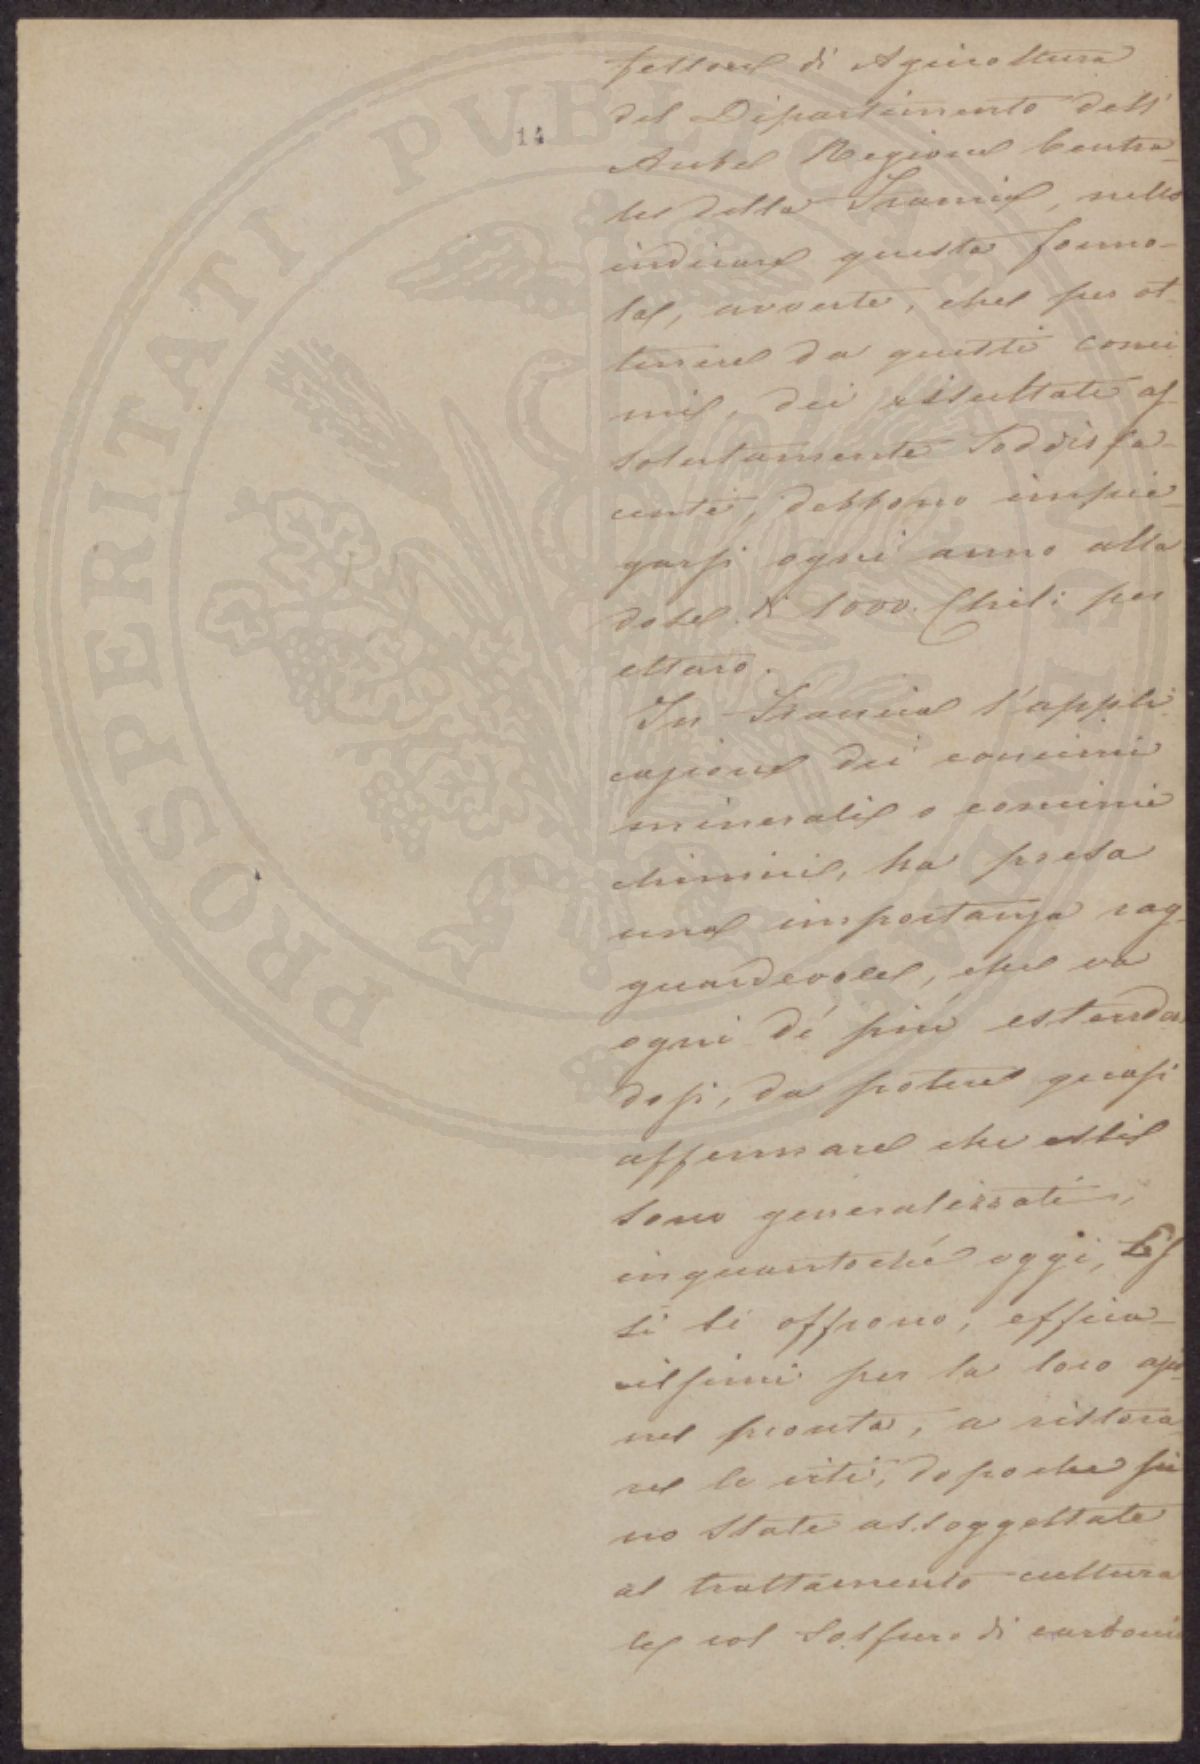 14
fessore di Agricoltura
del Dipartimento dell'
Aube Regione Centra-
le della Francia, nello
indicare questa formo-
la, avverte, che per ot-
tenere da questi conci
mi, dei risultati as-
solutamente soddisfa-
centi, debbono impie-
garsi ogni anno alla
dose di 1000. Chil: per
ettaro.
In Francia l'appli
cazione dei concimi
minerali o concimi
chimici, ha presa
una importanza rag-
guardevole, che va
ogni dí piú estenden
dosi, da potere quasi
affermare che essi
sono generalizzati,
inquantoché oggi, Es
si ci offrono, effica-
cissimi per la loro azio
ne pronta, a ristora
re le viti, dopoche fu
no state assoggettate
al trattamento cultura
le col Solfuro di carboni
PROSPERITATI PVBLICAE AVGENDAE